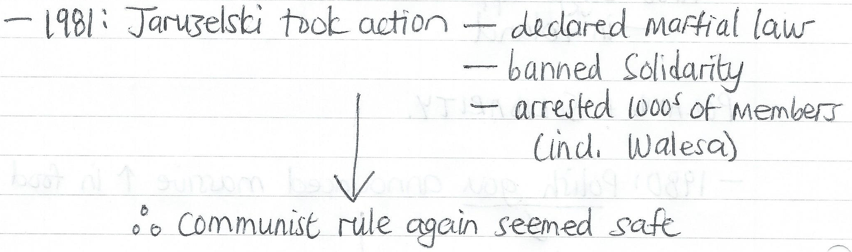 – 1981: Jaruzelski took action – declared martial law
– banned Solidarity
– arrested 1000s of members
(incl. Walesa)
∴ Communist rule again seemed safe